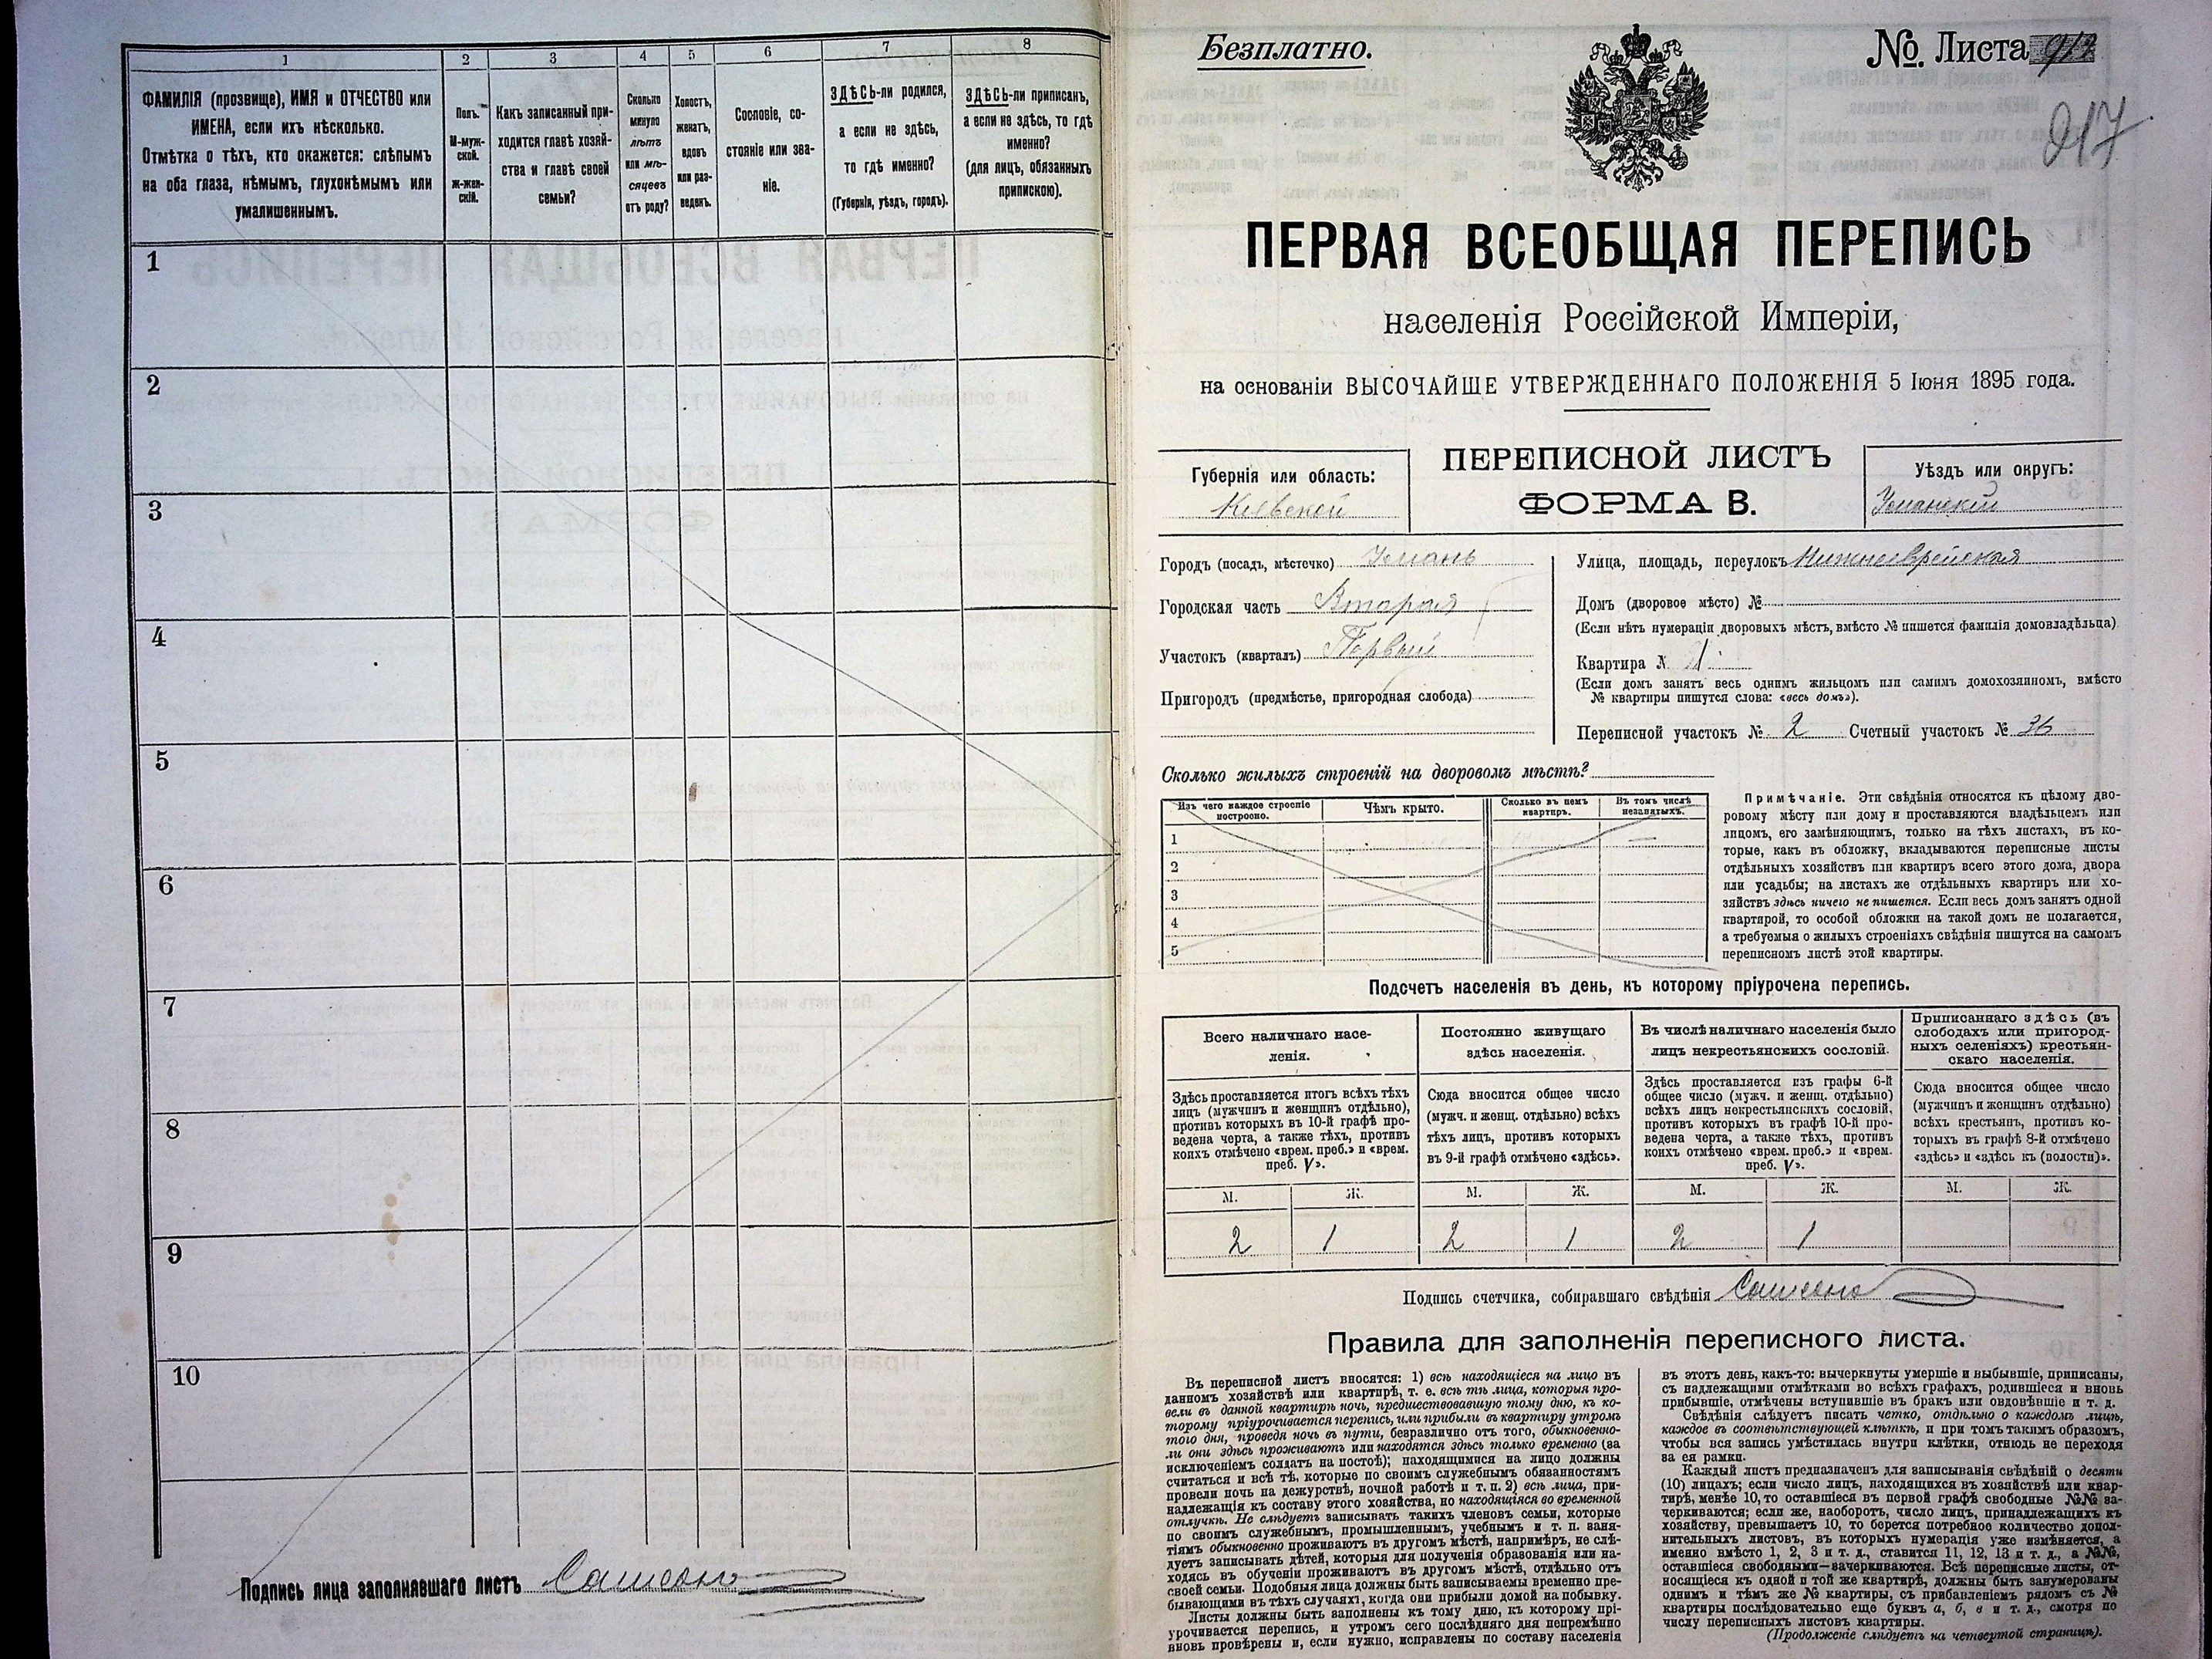 1 2 3 4 5 6 7 8
ФАМИЛІЯ (прозвище), ИМЯ и ОТЧЕСТВО или
ИМЕНА, если ихъ нѣсколько.
Отмѣтка о тѣхъ, кто окажется: слѣпымъ
на оба глаза, нѣмымъ, глухонѣмымъ или
умалишеннымъ.
Полъ.
М-муж-
ской.
ж-жен-
скій.
Какъ записанный при-
ходится главѣ хозяй-
ства и главѣ своей
семьи?
Сколько
минуло
лѣтъ
или мѣ-
сяцевъ
отъ роду?
Холостъ,
женатъ,
вдовъ
или раз-
веденъ.
Сословіе, со-
стояніе или зва-
ніе.
ЗДѢСЬ-ли родился,
а если не здѣсь,
то гдѣ именно?
(Губернія, уѣздъ, городъ).
ЗДѢСЬ-ли приписанъ,
а если не здѣсь, то гдѣ
именно?
(для лицъ, обязанныхъ
припискою).
1
2
3
4
5
6
7
8
9
10
Подпись лица заполнявшаго листъ
Безплатно.
№ Листа
917
ПЕРВАЯ ВСЕОБЩАЯ ПЕРЕПИСЬ
населенія Россійской Имперіи,
на основаніи ВЫСОЧАЙШЕ УТВЕРЖДЕННАГО ПОЛОЖЕНІЯ 5 Іюня 1895 года.
Губернія или область:
Кіевской
ПЕРЕПИСНОЙ ЛИСТЪ
ФОРМА В.
Уѣздъ или округъ:
Уманскій
Городъ (посадъ, мѣстечко) Умань
Городская часть Вторая
Участокъ (кварталъ) Первый
Пригородъ (предмѣстье, пригородная слобода)
Улица, площадь, переулокъ Нижнееврейская
Домъ (дворовое мѣсто) №
(Если нѣтъ нумераціи дворовыхъ мѣстъ, вмѣсто № пишется фамилія домовладѣльца)
Квартира №
(Если домъ занятъ весь однимъ жильцомъ или самимъ домохозяиномъ, вмѣсто
№ квартиры пишутся слова: «весь домъ»).
Переписной участокъ № 2 Счетный участокъ № 36
Сколько жилыхъ строеній на дворовомъ мѣстѣ?
Изъ чего каждое строеніе
построено.
Чѣмъ крыто.
Сколько въ немъ
квартиръ.
Въ томъ числѣ
незанятыхъ.
1
2
3
4
5
Примѣчаніе. Эти свѣдѣнія относятся къ цѣлому дво-
ровому мѣсту или дому и проставляются владѣльцемъ или
лицомъ, его замѣняющимъ, только на тѣхъ листахъ, въ ко-
торые, какъ въ обложку, вкладываются переписные листы
отдѣльныхъ хозяйствъ или квартиръ всего этого дома, двора
или усадьбы; на листахъ же отдѣльныхъ квартиръ или хо-
зяйствъ здѣсь ничего не пишется. Если весь домъ занятъ одной
квартирой, то особой обложки на такой домъ не полагается,
а требуемыя о жилыхъ строеніяхъ свѣдѣнія пишутся на самомъ
переписномъ листѣ этой квартиры.
Подсчетъ населенія въ день, къ которому пріурочена перепись.
Всего наличнаго насе-
ленія.
Постоянно живущаго
здѣсь населенія.
Въ числѣ наличнаго населенія было
лицъ некрестьянскихъ сословій.
Приписаннаго здѣсь (въ
слободахъ или пригород-
ныхъ селеніяхъ) крестьян-
скаго населенія.
Здѣсь проставляется итогъ всѣхъ тѣхъ
лицъ (мужчинъ и женщинъ отдѣльно),
противъ которыхъ въ 10-й графѣ про-
ведена черта, а также тѣхъ, противъ
коихъ отмѣчено «врем. преб.» и «врем.
преб. V».
Сюда вносится общее число
(мужч. и женщ. отдѣльно) всѣхъ
тѣхъ лицъ, противъ которыхъ
въ 9-й графѣ отмѣчено «здѣсь».
Здѣсь проставляется изъ графы 6-й
общее число (мужч. и женщ. отдѣльно)
всѣхъ лицъ некрестьянскихъ сословій,
противъ которыхъ въ графѣ 10-й про-
ведена черта, а также тѣхъ, противъ
коихъ отмѣчено «врем. преб.» и «врем.
преб. V».
Сюда вносится общее число
(мужчинъ и женщинъ отдѣльно)
всѣхъ крестьянъ, противъ ко-
торыхъ въ графѣ 8-й отмѣчено
«здѣсь» и «здѣсь къ (полости)».
М. Ж. М. Ж. М. Ж. М. Ж.
2 1 2 1 2 1
Подпись счетчика, собиравшаго свѣдѣнія
Правила для заполненія переписного листа.
Въ переписной листъ вносятся: 1) всѣ находящіеся на лицо въ
данномъ хозяйствѣ или квартирѣ, т. е. всѣ тѣ лица, которыя про-
вели въ данной квартирѣ ночь, предшествовавшую тому дню, къ ко-
торому пріурочивается перепись, или прибыли въ квартиру утромъ
того дня, проведя ночь въ пути, безразлично отъ того, обыкновенно-
ли они здѣсь проживаютъ или находятся здѣсь только временно (за
исключеніемъ солдатъ на постоѣ); находящимися на лицо должны
считаться и всѣ тѣ, которые по своимъ служебнымъ обязанностямъ
провели ночь на дежурствѣ, ночной работѣ и т. п. 2) всѣ лица, при-
надлежащія къ составу этого хозяйства, но находящіяся во временной
отлучкѣ. Не слѣдуетъ записывать такихъ членовъ семьи, которые
по своимъ служебнымъ, промышленнымъ, учебнымъ и т. п. заня-
тіямъ обыкновенно проживаютъ въ другомъ мѣстѣ, напримѣръ, не слѣ-
дуетъ записывать дѣтей, которыя для полученія образованія или на-
ходясь въ обученіи проживаютъ въ другомъ мѣстѣ, отдѣльно отъ
своей семьи. Подобныя лица должны быть записываемы временно пре-
бывающими въ тѣхъ случаяхъ, когда они прибыли домой на побывку.
Листы должны быть заполнены къ тому дню, къ которому прі-
урочивается перепись, и утромъ сего послѣдняго дня непремѣнно
вновь провѣрены и, если нужно, исправлены по составу населенія
въ этотъ день, какъ-то: вычеркнуты умершіе и выбывшіе, приписаны,
съ надлежащими отмѣтками во всѣхъ графахъ, родившіеся и вновь
прибывшіе, отмѣчены вступившіе въ бракъ или овдовѣвшіе и т. д.
Свѣдѣнія слѣдуетъ писать четко, отдѣльно о каждомъ лицѣ,
каждое въ соотвѣтствующей клѣткѣ, и при томъ такимъ образомъ,
чтобы вся запись умѣстилась внутри клѣтки, отнюдь не переходя
за ея рамки.
Каждый листъ предназначенъ для записыванія свѣдѣній о десяти
(10) лицахъ; если число лицъ, находящихся въ хозяйствѣ или квар-
тирѣ, менѣе 10, то оставшіеся въ первой графѣ свободные №№ за-
черкиваются; если же, наоборотъ, число лицъ, принадлежащихъ къ
хозяйству, превышаетъ 10, то берется потребное количество допол-
нительныхъ листовъ, въ которыхъ нумерація уже измѣняется, а
именно вмѣсто 1, 2, 3 и т. д., ставится 11, 12, 13 и т. д., а №№,
оставшіеся свободными—зачеркиваются. Всѣ переписные листы, от-
носящіеся къ одной и той же квартирѣ, должны быть занумерованы
однимъ и тѣмъ же № квартиры, съ прибавленіемъ рядомъ съ №
квартиры послѣдовательно еще буквъ а, б, в и т. д., смотря по
числу переписныхъ листовъ квартиры.
(Продолженіе слѣдуетъ на четвертой страницѣ).